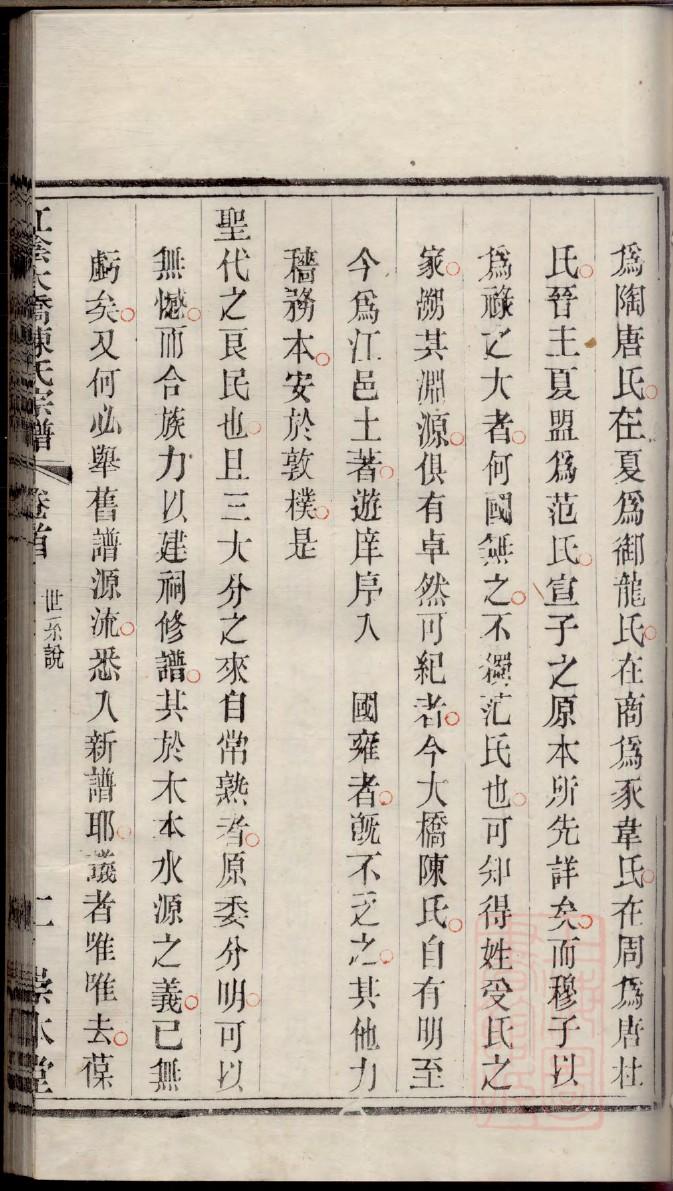 爲陶唐氏在夏爲御龍氏在商爲豕韋氏在周爲唐杜
氏晉主夏盟爲范氏宣子之原本所先詳矣而穆子以
爲祿之大者何國無之不獨范氏也可知得姓受氏之
家溯其淵源俱有卓然可紀者今大橋陳氏自有明至
今爲江邑土著遊庠序入 國雍者旣不乏之其他力
穡務本安於敦樸是
聖代之良民也且三大分之來自常熟者原委分明可以
無憾而合族力以建祠修譜其於木本水源之義已無
虧矣又何必舉舊譜源流悉入新譜耶議者唯唯去葆
江陰大橋陳氏宗譜 卷首 世系說 二 崇本堂